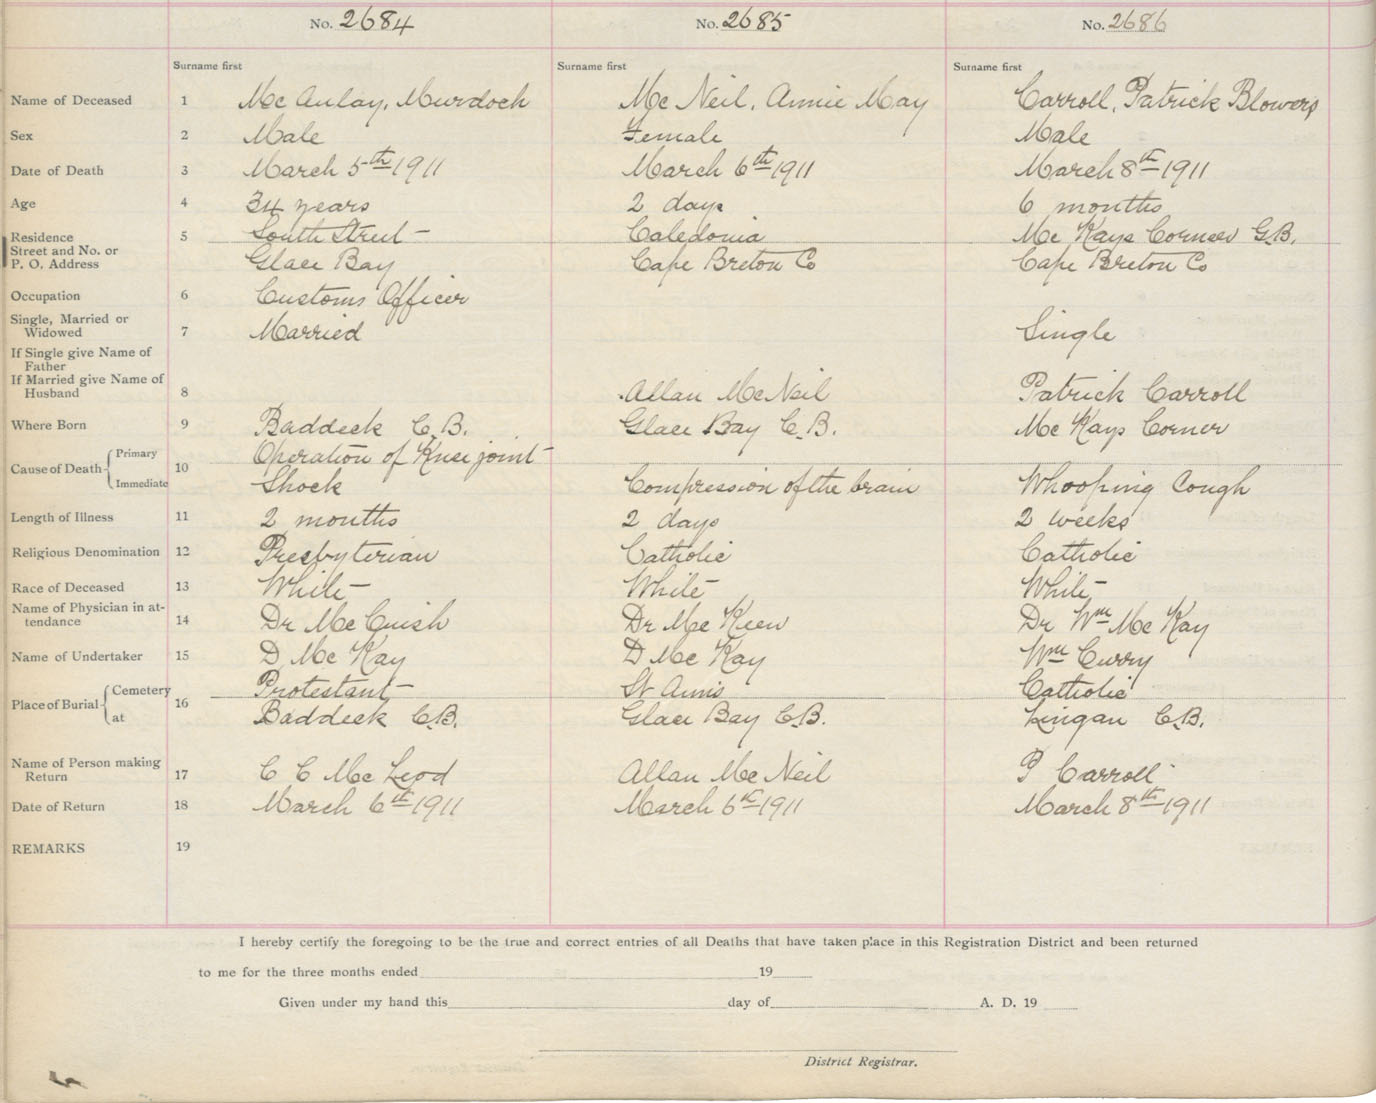 No. 2684 No. 2685 No. 2686
Surname first Surname first Surname first
Name of Deceased 1 McAulay, Murdoch McNeil, Annie May Carroll, Patrick Blowers
Sex 2 Male Female Male
Date of Death 3 March 5th 1911 March 6th 1911 March 8th 1911
Age 4 34 years 2 days 6 months
Residence 5 South Street Caledonia McKays Corner G.B.
Street and No. or
P. O. Address Glace Bay Cape Breton Co Cape Breton Co
Occupation 6 Customs Officer
Single, Married or
Widowed 7 Married Single
If Single give Name of
Father
If Married give Name of
Husband 8 Allan McNeil Patrick Carroll
Where Born 9 Baddeck C.B. Glace Bay C.B. McKays Corner
Cause of Death 10 Primary Operation of Knee joint
Immediate Shock Compression of the brain Whooping Cough
Length of Illness 11 2 months 2 days 2 weeks
Religious Denomination 12 Presbyterian Catholic Catholic
Race of Deceased 13 White White White
Name of Physician in at-
tendance 14 Dr McCuish Dr McKeen Dr Wm McKay
Name of Undertaker 15 D McKay D McKay Wm Curry
Place of Burial 16 Cemetery Protestant St Anns Catholic
at Baddeck C.B. Glace Bay C.B. Lingan C.B.
Name of Person making
Return 17 C C McLeod Allan McNeil P Carroll
Date of Return 18 March 6th 1911 March 6th 1911 March 8th 1911
REMARKS 19
I hereby certify the foregoing to be the true and correct entries of all Deaths that have taken place in this Registration District and been returned
to me for the three months ended 19
Given under my hand this day of A. D. 19
District Registrar.